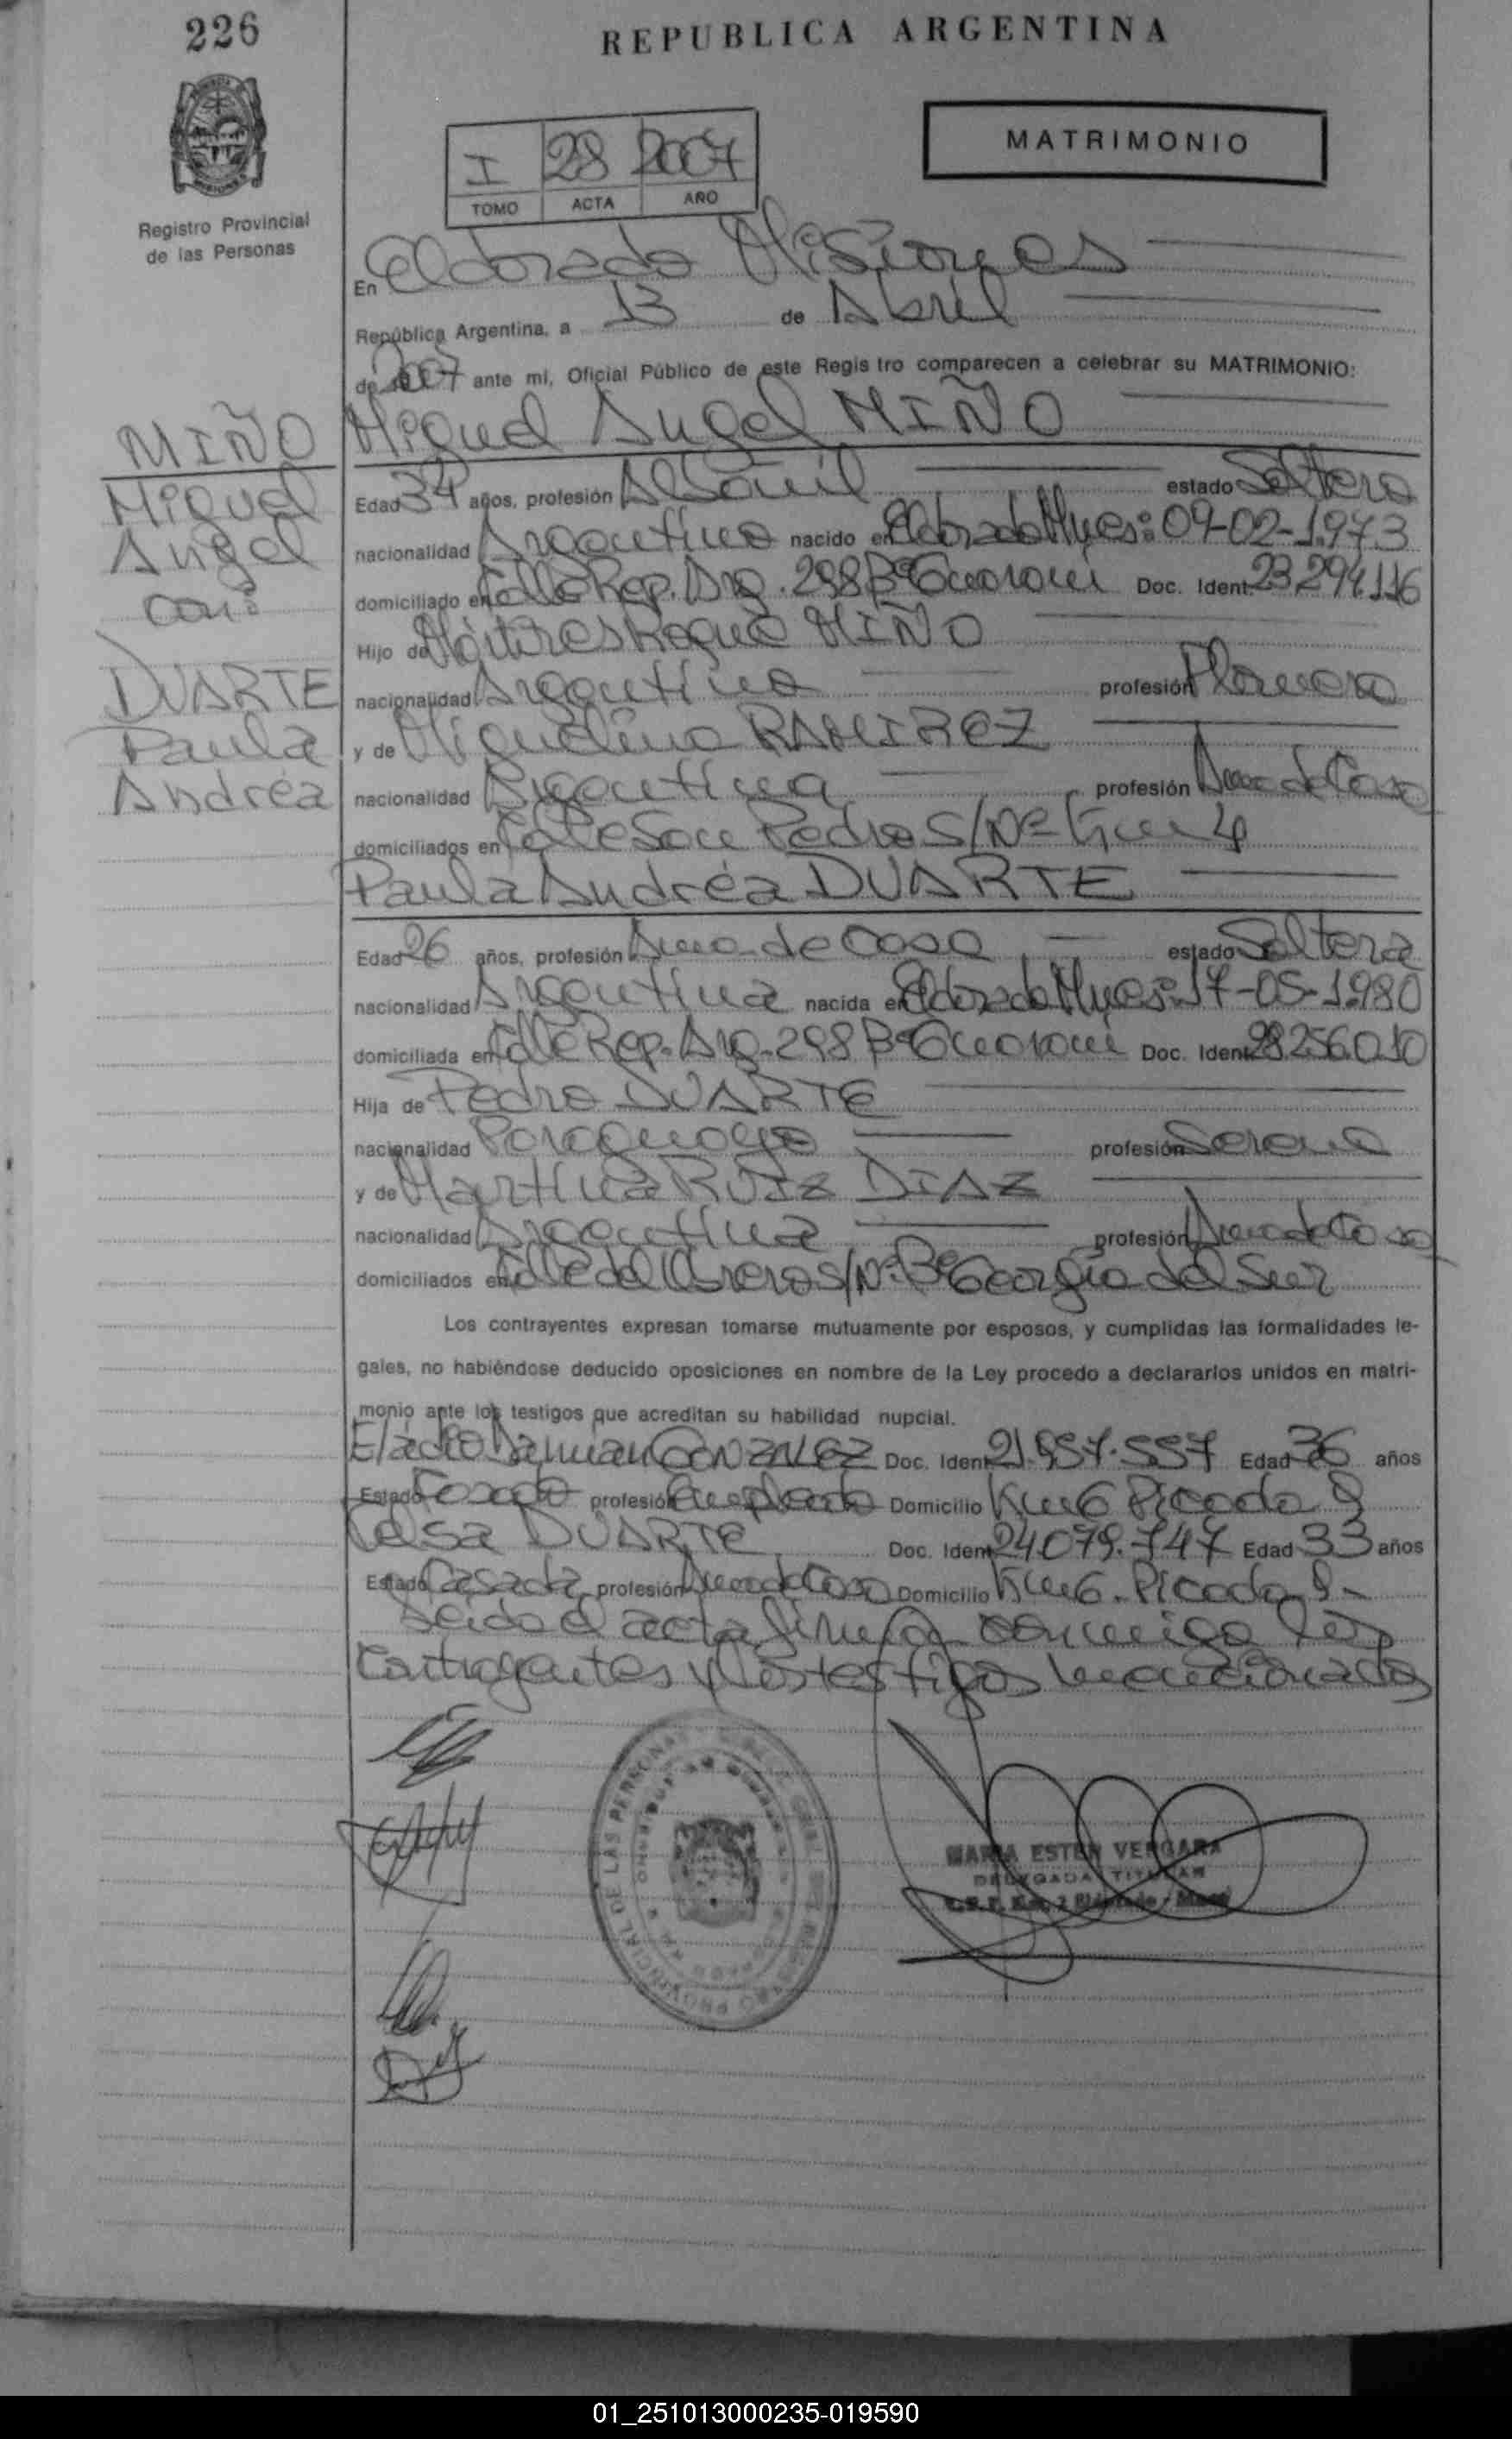 226
REPUBLICA ARGENTINA
MATRIMONIO
I 28 2007
TOMO ACTA AÑO
Registro Provincial
de las Personas
En Eldorado Misiones
República Argentina, a 13 de Abril
de 2007 ante mí, Oficial Público de este Regis tro comparecen a celebrar su MATRIMONIO:
MIÑO
Miguel
Angel
con:
DUARTE
Paula
Andréa
Miguel Angel MIÑO
Edad 34 años, profesión Albañil estado Soltero
nacionalidad Argentino nacido en Eldorado Mnes: 09-02-1.973
domiciliado en Calle Rep. Arg. 298 Bº Guaraní Doc. Ident. 23.294.116
Hijo de Mártires Roque MIÑO
nacionalidad Argentino profesión
y de Miguelina RAMIREZ
nacionalidad Argentina profesión Ama de Casa
domiciliados en Calle San Pedro S/Nº Km 4
Paula Andréa DUARTE
Edad 26 años, profesión Ama de Casa estado Soltera
nacionalidad Argentina nacida en Eldorado Mnes: 17-05-1.980
domiciliada en Calle Rep. Arg. 298 Bº Guaraní Doc. Ident. 28.256.010
Hija de Pedro DUARTE
nacionalidad Paraguayo profesión Sereno
y de Martina RUIZ DIAZ
nacionalidad Argentina profesión Ama de Casa
domiciliados en Calle del Obrero S/Nº Bº Georgia del Sur
Los contrayentes expresan tomarse mutuamente por esposos, y cumplidas las formalidades le-
gales, no habiéndose deducido oposiciones en nombre de la Ley procedo a declararlos unidos en matri-
monio ante los testigos que acreditan su habilidad nupcial.
Eladio Damian GONZALEZ Doc. Ident. 21.957.557 Edad 36 años
Estado Casado profesión Empleado Domicilio Km 6 Picada 9
Celsa DUARTE Doc. Ident. 24.079.747 Edad 33 años
Estado Casada profesión Ama de Casa Domicilio Km 6. Picada 9-
Leida el acta firman conmigo los
Contrayentes y los testigos mencionados
MARIA ESTER VERGARA
DELEGADA TITULAR
01_251013000235-019590